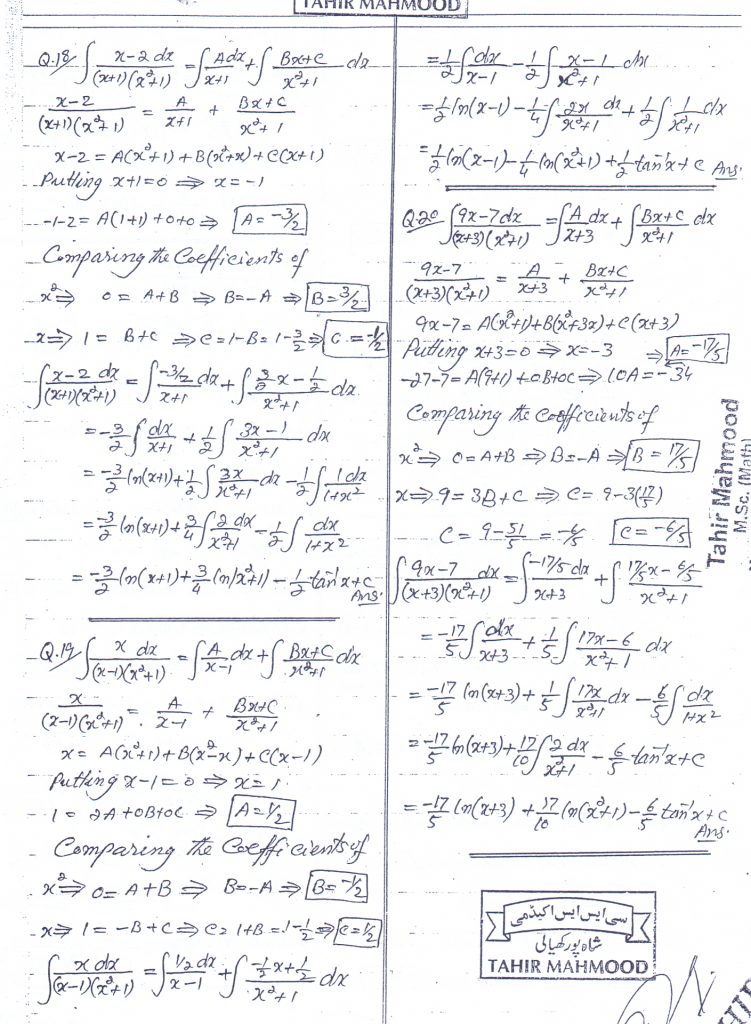 TAHIR MAHMOOD
Q.18/ ∫ x-2 dx / (x+1)(x²+1) = ∫ A dx / x+1 + ∫ Bx+C / x²+1 dx
x-2 / (x+1)(x²+1) = A / x+1 + Bx+C / x²+1
x-2 = A(x²+1) + B(x²+x) + C(x+1)
Putting x+1=0 ⇒ x=-1
-1-2 = A(1+1)+0+0 ⇒ A = -3/2
Comparing the Coefficients of
x² ⇒ 0 = A+B ⇒ B=-A ⇒ B=3/2
x ⇒ 1 = B+C ⇒ C=1-B=1-3/2 ⇒ C=-1/2
∫ x-2 dx / (x+1)(x²+1) = ∫ -3/2 / x+1 dx + ∫ 3/2 x - 1/2 / x²+1 dx
= -3/2 ∫ dx / x+1 + 1/2 ∫ 3x-1 / x²+1 dx
= -3/2 ln(x+1) + 1/2 ∫ 3x / x²+1 dx - 1/2 ∫ 1 dx / 1+x²
= -3/2 ln(x+1) + 3/4 ∫ 2 dx / x²+1 - 1/2 ∫ dx / 1+x²
= -3/2 ln(x+1) + 3/4 ln(x²+1) - 1/2 tan⁻¹x + C Ans.
Q.19 ∫ x dx / (x-1)(x²+1) = ∫ A / x-1 dx + ∫ Bx+C / x²+1 dx
x / (x-1)(x²+1) = A / x-1 + Bx+C / x²+1
x = A(x²+1) + B(x²-x) + C(x-1)
Putting x-1=0 ⇒ x=1
1 = 2A+0B+0C ⇒ A=1/2
Comparing the Coefficients of
x² ⇒ 0=A+B ⇒ B=-A ⇒ B=-1/2
x ⇒ 1 = -B+C ⇒ C=1+B=1-1/2 ⇒ C=1/2
∫ x dx / (x-1)(x²+1) = ∫ 1/2 dx / x-1 + ∫ -1/2 x + 1/2 / x²+1 dx
= 1/2 ∫ dx / x-1 - 1/2 ∫ x-1 / x²+1 dx
= 1/2 ln(x-1) - 1/4 ∫ 2x / x²+1 dx + 1/2 ∫ 1 / x²+1 dx
= 1/2 ln(x-1) - 1/4 ln(x²+1) + 1/2 tan⁻¹x + C Ans.
Q.20 ∫ 9x-7 dx / (x+3)(x²+1) = ∫ A / x+3 dx + ∫ Bx+C / x²+1 dx
9x-7 / (x+3)(x²+1) = A / x+3 + Bx+C / x²+1
9x-7 = A(x²+1)+B(x²+3x)+C(x+3)
Putting x+3=0 ⇒ x=-3 ⇒ A=-17/5
-27-7=A(9+1)+0B+0C ⇒ 10A=-34
Comparing the coefficients of
x² ⇒ 0=A+B ⇒ B=-A ⇒ B=17/5
x ⇒ 9=3B+C ⇒ C=9-3(17/5)
C = 9-51/5 = -6/5 C=-6/5
∫ 9x-7 / (x+3)(x²+1) dx = ∫ -17/5 dx / x+3 + ∫ 17/5 x - 6/5 / x²+1
= -17/5 ∫ dx / x+3 + 1/5 ∫ 17x-6 / x²+1 dx
= -17/5 ln(x+3) + 1/5 ∫ 17x / x²+1 dx - 6/5 ∫ dx / 1+x²
= -17/5 ln(x+3) + 17/10 ∫ 2 dx / x²+1 - 6/5 tan⁻¹x + C
= -17/5 ln(x+3) + 17/10 ln(x²+1) - 6/5 tan⁻¹x + C
Ans.
Tahir Mahmood
M.Sc. (Math)
سی ایس ایس اکیڈمی
شاہ پور کھیالی
TAHIR MAHMOOD